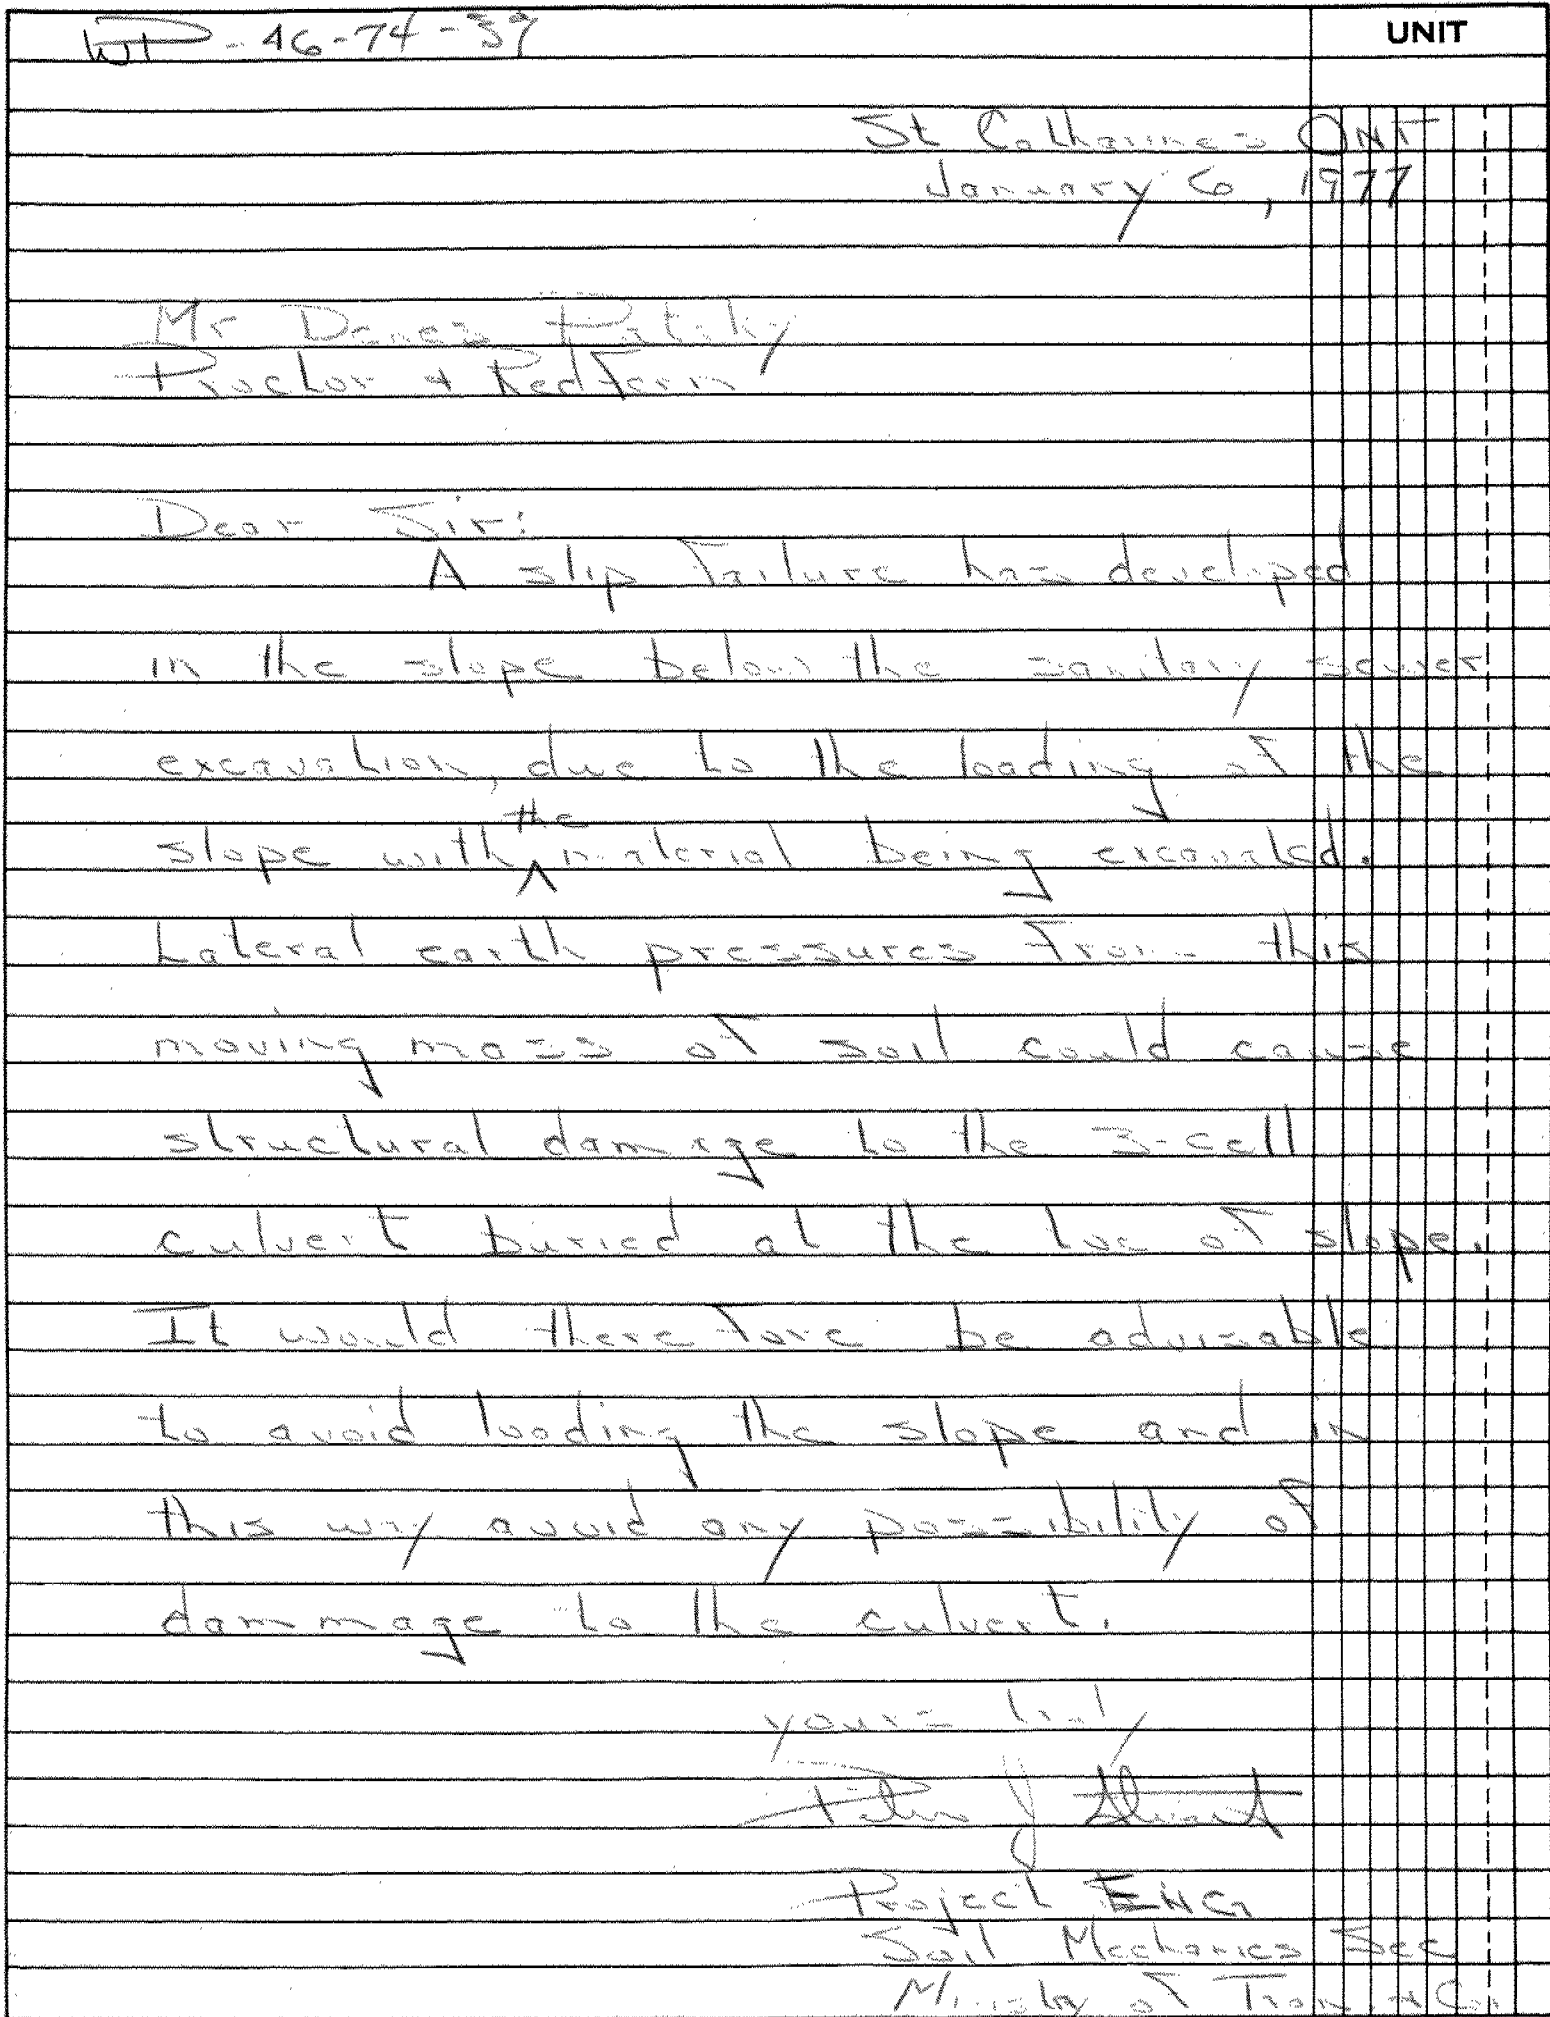 WP-46-74-39
UNIT
St Catharines ONT
January 6, 1977
Mr Denes Pataky
Proctor & Redfern
Dear Sir:
A slip failure has developed
in the slope below the sanitary sewer
excavation, due to the loading of the
the
slope with ^ material being excavated.
Lateral earth pressures from this
moving mass of soil could cause
structural damage to the 3-cell
culvert buried at the toe of slope.
It would therefore be advisable
to avoid loading the slope and in
this way avoid any possibility of
dammage to the culvert.
yours truly
Project ENG
Soil Mechanics Sec
Ministry of Tran. & C